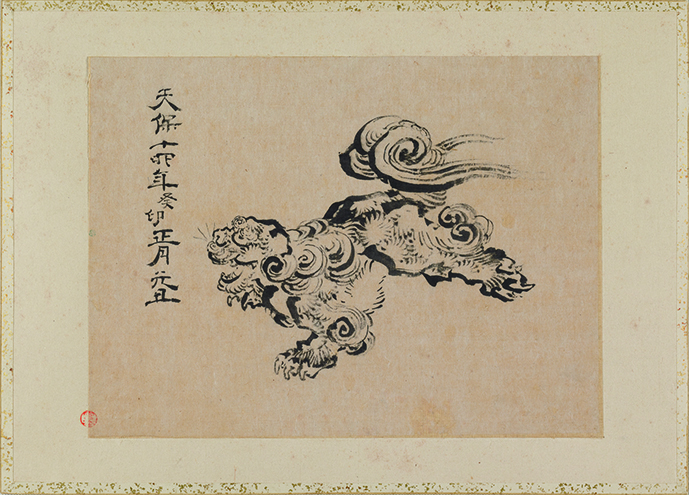 天保十四年癸卯正月元旦